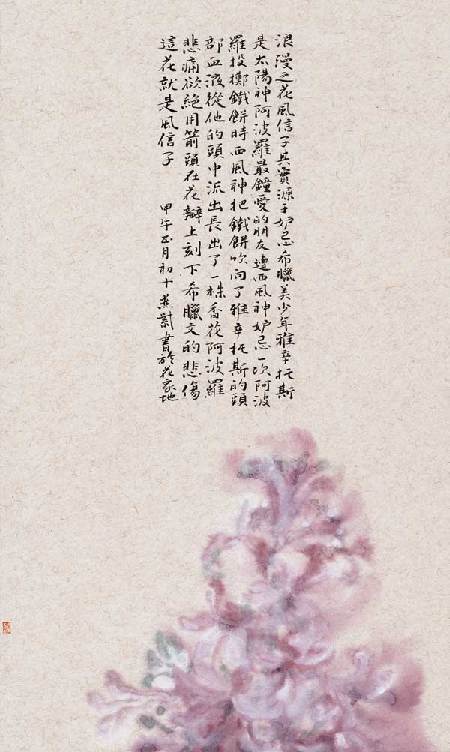 浪漫之花風信子其實源于妒忌希臘美少年雅辛托斯
是太陽神阿波羅最鐘愛的朋友遭西風神妒忌一次阿波
羅投擲鐵餅時西風神把鐵餅吹向了雅辛托斯的頭
部血液從他的頭中流出長出了一株香花阿波羅
悲痛欲絕用箭頭在花瓣上刻下希臘文的悲傷
這花就是風信子 甲午正月初十書於花家地